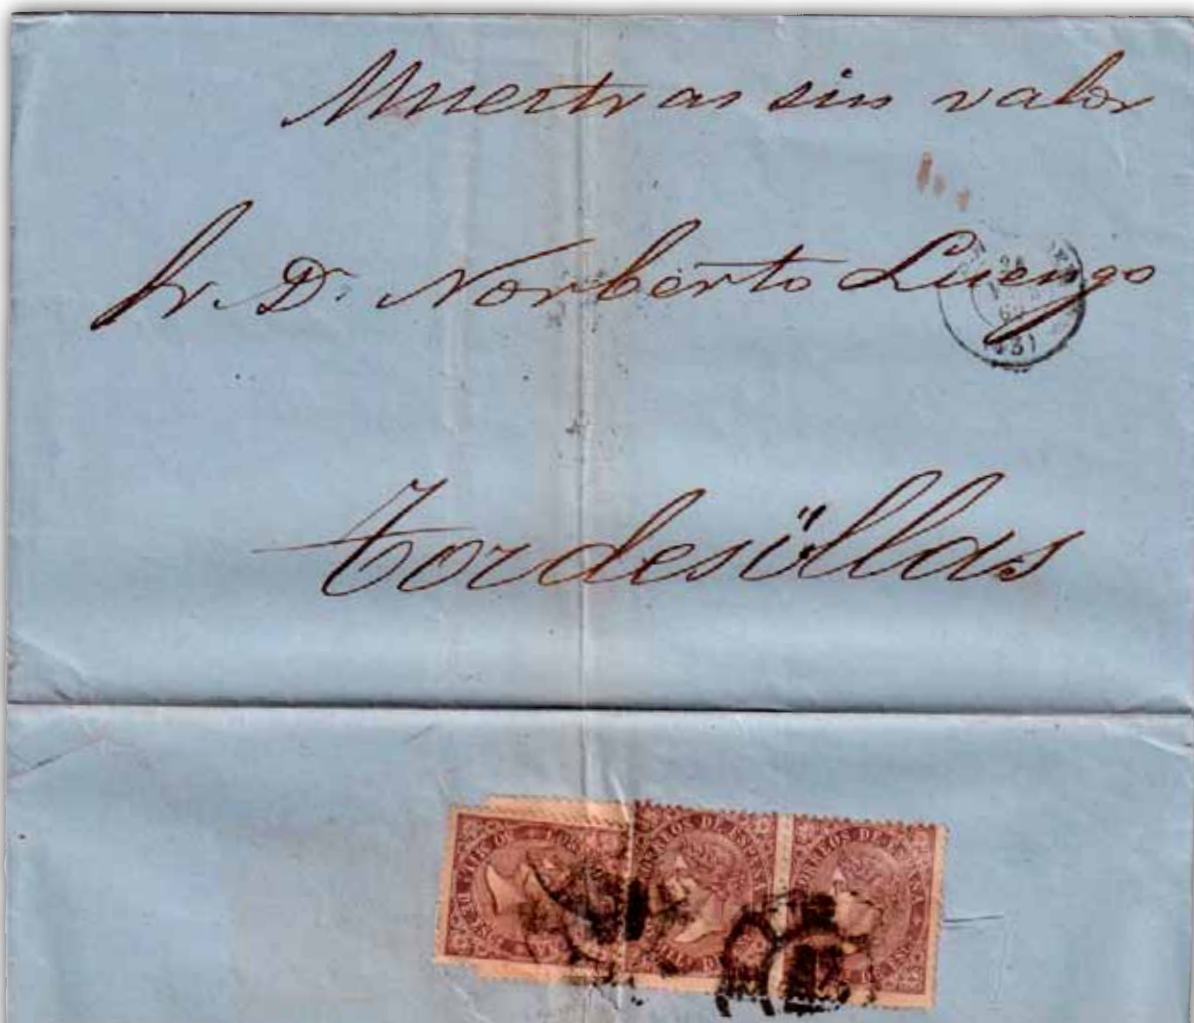 Muestras sin valor
Sr. D. Norberto Luengo
(43)
Tordesillas
CORREOS DE ESPAÑA
CORREOS DE ESPAÑA